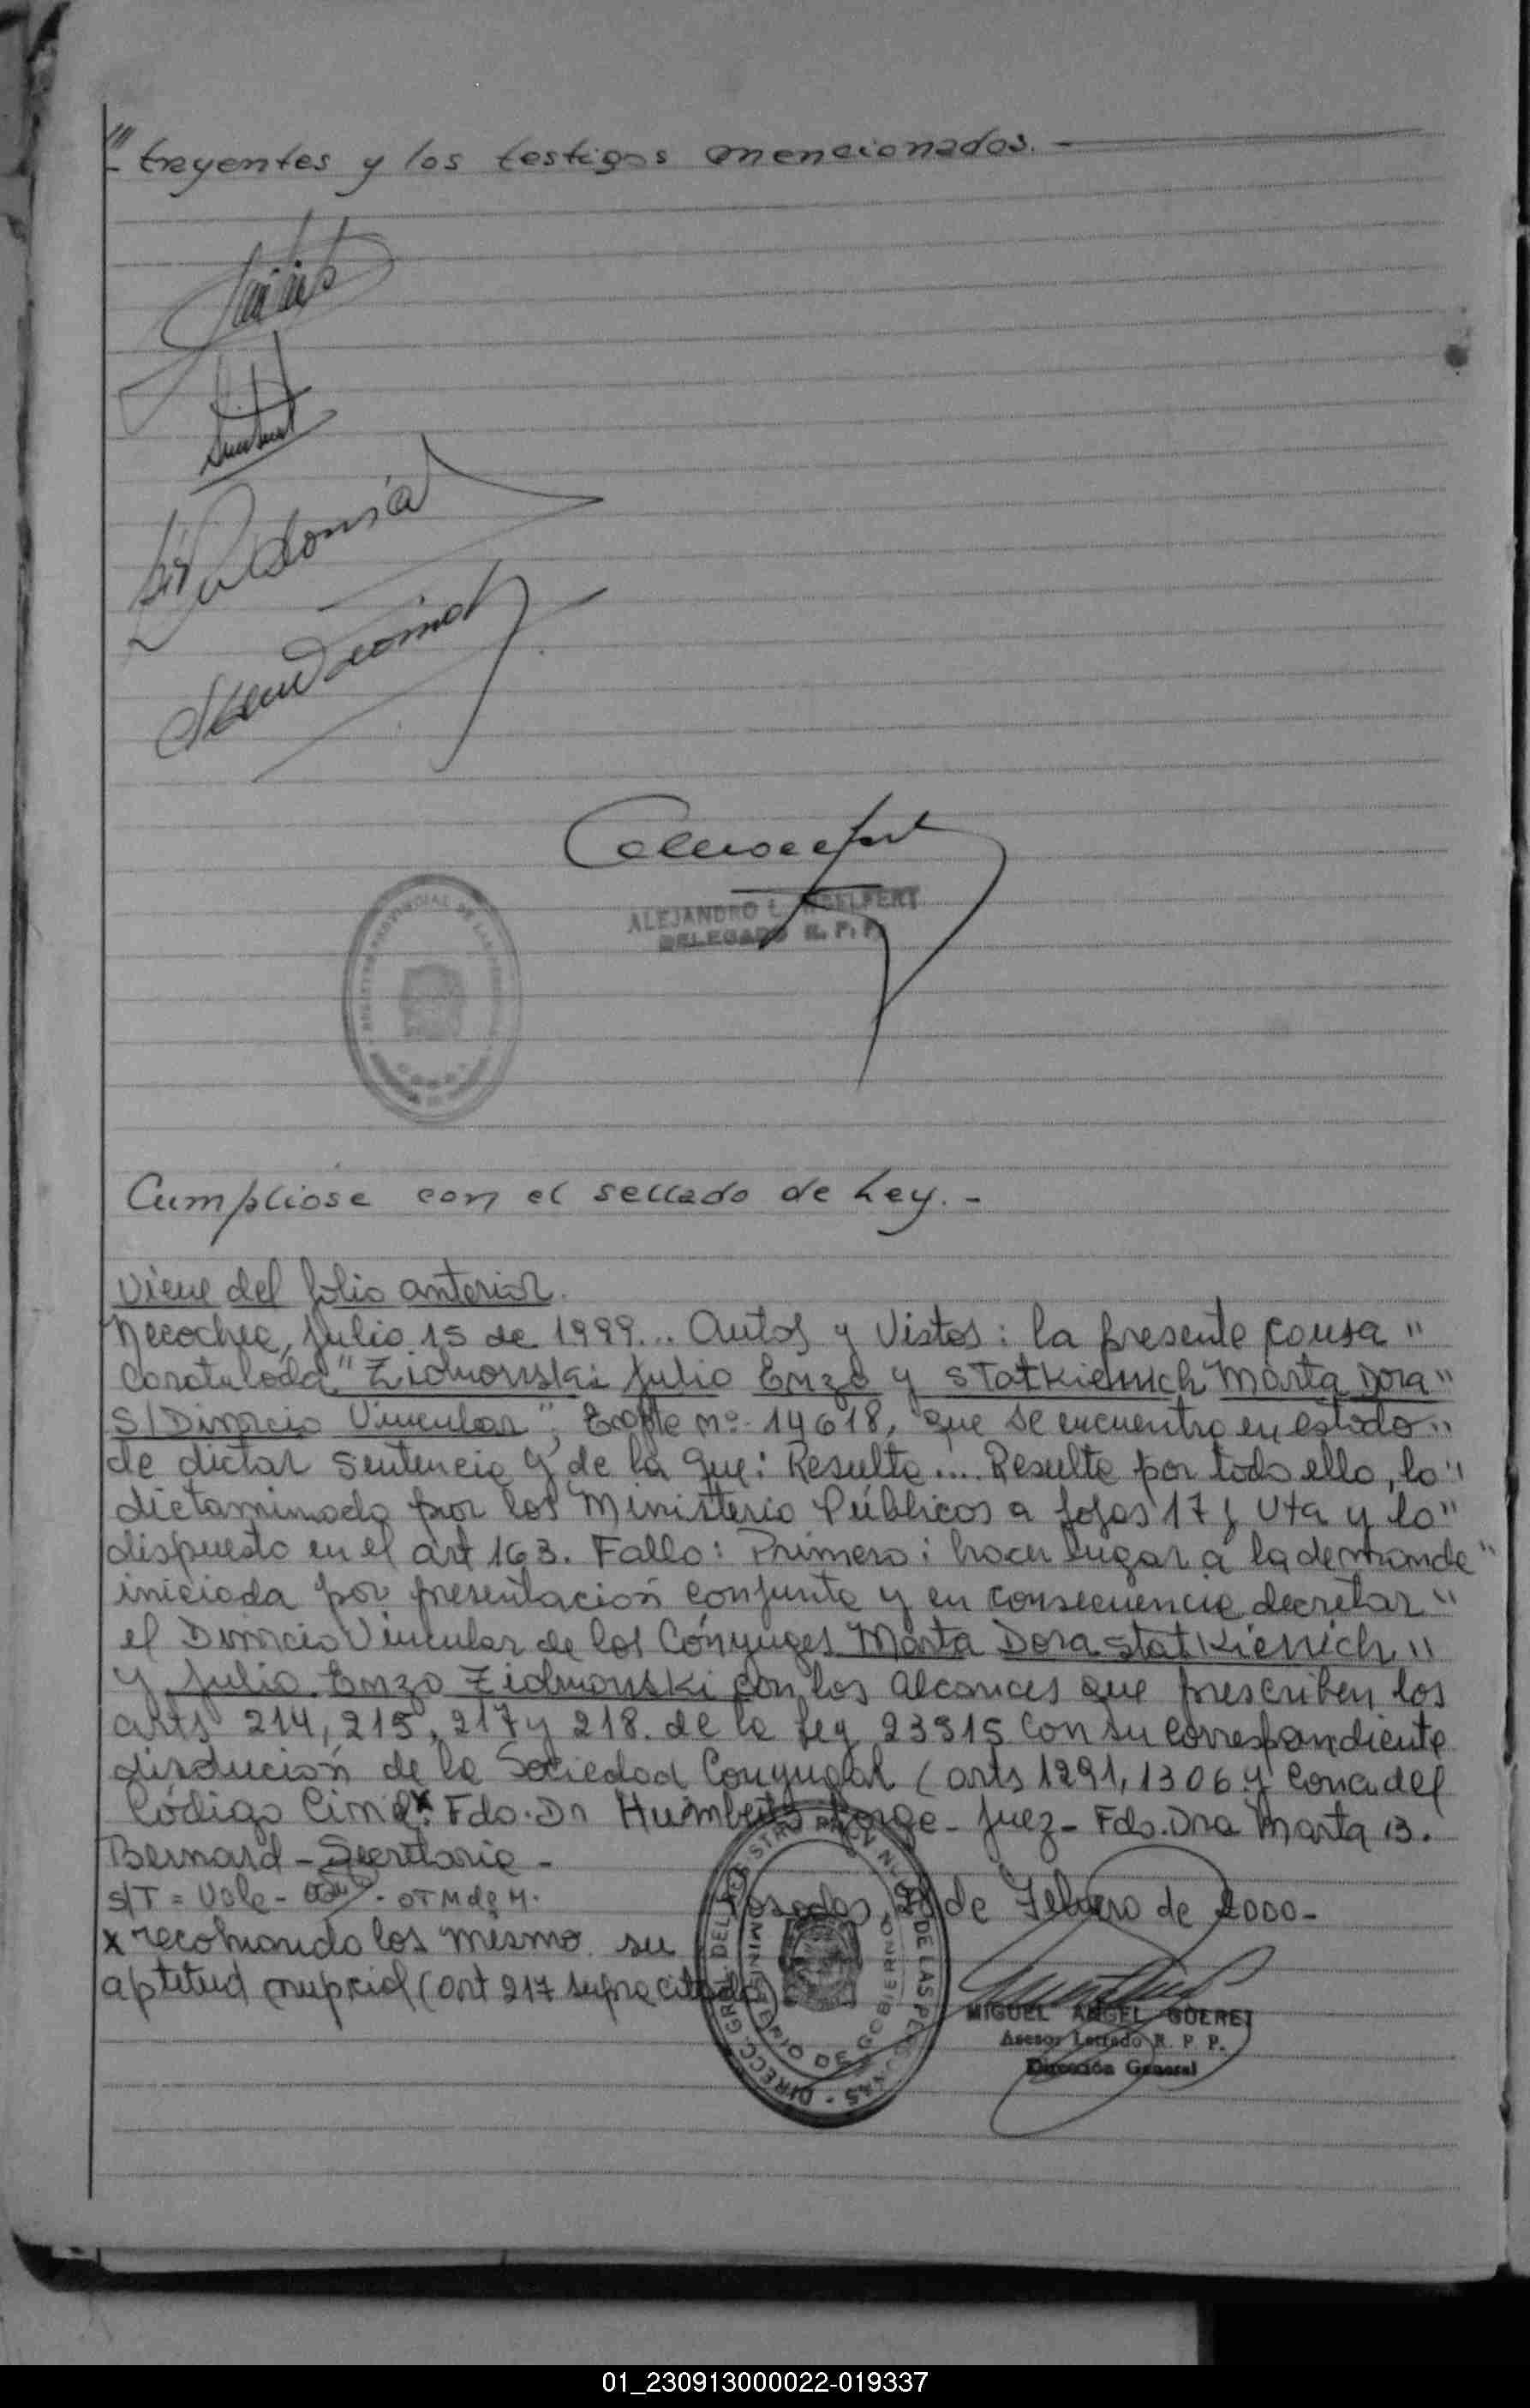 "- trayentes y los testigos mencionados. -
ALEJANDRO L.
DELEGADO R. P. P.
Cumpliose con el sellado de Ley. -
Viene del folio anterior.
Necochea, Julio 15 de 1999... Autos y Vistos: la presente causa "
Caratulada "Zidmonski Julio Enzo y Statkievich Marta Dora"
S/Divorcio Vincular", Expte nº 14618, que se encuentra en estado "
de dictar sentencia y de la que: Resulta .... Resulta por todo ello, lo "
dictaminado por los Ministerio Públicos a fojas 17 y Vta y lo "
dispuesto en el art 163. Fallo: Primero: hacer lugar a la demanda "
iniciada por presentación conjunta y en consecuencia decretar "
el Divorcio Vincular de los Cónyuges Marta Dora Statkievich "
y Julio Enzo Zidmonski con los alcances que prescriben los
arts 214, 215, 217 y 218. de la Ley 23515 con su correspondiente
disolución de la Sociedad Conyugal (arts 1291, 1306 y conc. del
Código Civil x Fdo. Dr Humberto Jorge - Juez - Fdo. Dra Marta B.
Bernard - Secretaria -
S/T = Vale - . OT M de M.
Posadas, de Febrero de 2000 -
x recobrando los mismo su
aptitud nupcial (art 217 supra citado)
DIRECC. GRAL. DEL REGISTRO PROVINCIAL DE LAS PERSONAS - MINISTERIO DE GOBIERNO
MIGUEL ANGEL GUERET
Asesor Letrado R. P. P.
Dirección General
01_230913000022-019337